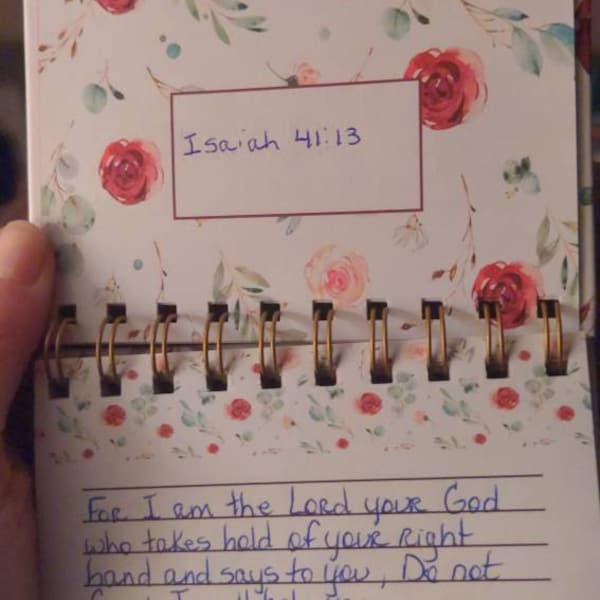 Isaiah 41:13
For I am the Lord your God
who takes hold of your Right
hand and says to you, Do not